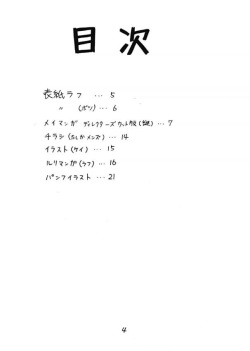 目次
表紙ラフ … 5
〃 (ボツ) … 6
メイマンガ ディレクターズカット版 … 7
チラシ (たしかメンズ) … 14
イラスト (ケイ) … 15
ルリマンガ (ラフ) … 16
パンフイラスト … 21
4